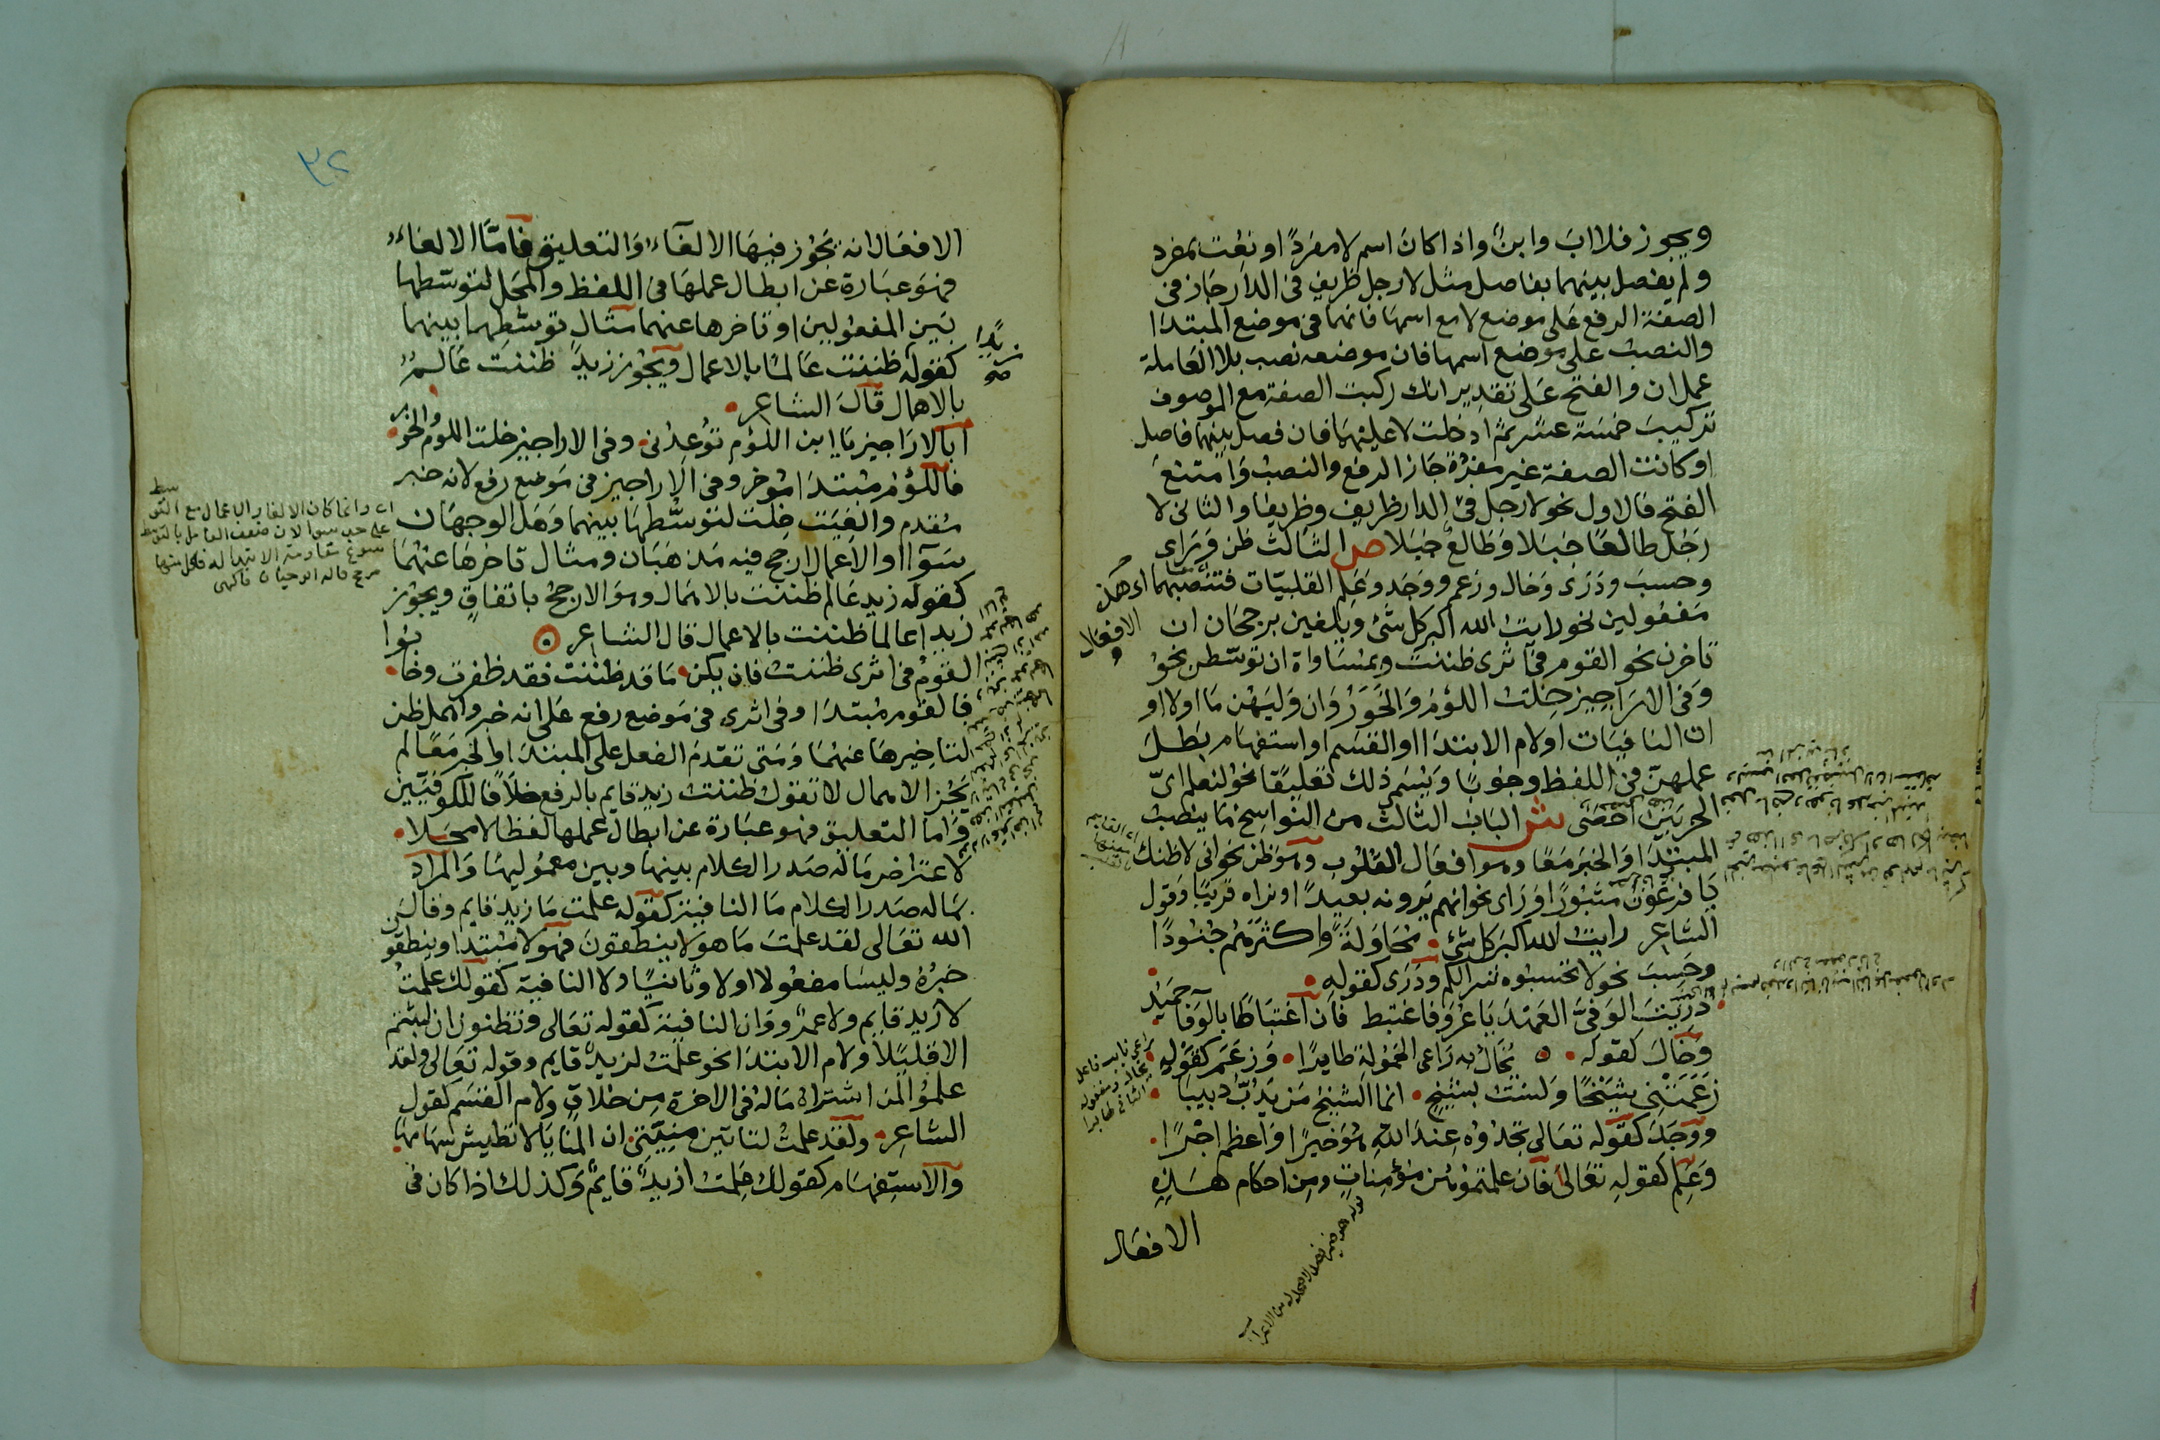 ويجوز فلا اب وابن واذا كان اسم لا مفردًا او نعت بمفرد
ولم يفصل بينهما بفاصل مثل لا رجل ظريف في الدار جاز في
الصفة الرفع على موضع لا مع اسمها فانهما في موضع المبتدا
والنصب على موضع اسمها فان موضعه نصب بلا العاملة
عمل ان والفتح على تقدير انك ركبت الصفة مع الموصوف
تركيب خمسة عشر ثم ادخلت لا عليهما فان فصل بينهما فاصل
او كانت الصفة غير مفردة جاز الرفع والنصب وامتنع
الفتح فالاول نحو لا رجل في الدار ظريف وظريفا والثاني لا
رجل طالعًا جبلا وطالع جبلا ص الثالث ظن وراى
وحسب ودرى وخال وزعم ووجد وعلم القلبيات فتنصبهما
مفعولين نحو رايت الله اكبر كل شئ ويلغين برجحان ان
تاخرن نحو القوم في اثرى ظننت وبمساواة ان توسطن نحو
وفي الاراجيز خلت اللؤم والخور وان وليهن ما او لا او
ان النافيات او لام الابتدا او القسم او استفهام بطل
عملهن في اللفظ وجوبًا ويسم ذلك تعليقًا نحو لنعلم اىّ
الحزبين احصى ش الباب الثالث من النواسخ ما ينصب
المبتدا والخبر معًا وهو افعال القلوب وهو ظن نحو اني لاظنك
يا فرعون مثبورًا وراى نحو انهم يرونه بعيدًا ونراه قريبًا وقول
الشاعر رايت الله اكبر كل شئ محاولة واكثرهم جنودًا
وحسب نحو لا تحسبوه شرا لكم ودرى كقوله
دريت الوفي العهد يا عرو فاغتبط فان اغتباطًا بالوفآ حميد
وخال كقوله يخال به راعى الحمولة طايرًا وزعم كقوله
زعمتني شيخًا ولست بشيخ انما الشيخ من يدب دبيبا
ووجد كقوله تعالى تجدوه عند الله هو خيرًا واعظم اجرًا
وعلم كقوله تعالى فان علمتموهن مؤمنات ومن احكام هذه
الافعال
الافعال انه يجوز فيها الالغآء والتعليق فامّا الالغاء
فهو عبارة عن ابطال عملها في اللفظ والمحل لتوسّطها
بين المفعولين او تاخرها عنهما مثال توسّطها بينهما
كقوله ظننت عالمًا بالاعمال ويجوز زيد ظننت عالم
زيدًا
صح
بالاهمال قال الشاعر
ابالاراجيز يا ابن اللؤم توعدني وفي الاراجيز خلت اللوم والخور
فاللؤم مبتدا مؤخر وفي الاراجيز في موضع رفع لانه خبر
مقدم والغيت خلت لتوسّطها بينهما وهل الوجهان
سوآ او الاعمال ارجح فيه مذهبان ومثال تاخرها عنهما
كقوله زيد عالم ظننت بالاهمال وهو الارجح باتفاق ويجوز
زيدا عالما ظننت بالاعمال قال الشاعر
القوم في اثرى ظننت فان يكن ما قد ظننت فقد ظفرت وخابوا
فالقوم مبتدا وفي اثرى في موضع رفع على انه خبر واهمل ظن
لتاخيرها عنهما ومتى تقدم الفعل على المبتدا والخبر معًا لم
يجز الاهمال لا تقول ظننت زيد قايم بالرفع خلافًا للكوفيين
واما التعليق فهو عبارة عن ابطال عملها لفظا لا محلا
لاعتراض ما له صدر الكلام بينها وبين معموليها والمراد
بما له صدر الكلام ما النافية كقوله علمت ما زيد قايم وقال
الله تعالى لقد علمت ما هولا ينطقون فهولا مبتدا وينطقون
خبره وليسا مفعولا اولا وثانيًا ولا النافية كقولك علمت
لا زيد قايم ولا عمرو وان النافية كقوله تعالى وتظنون ان لبثتم
الا قليلًا ولام الابتدا نحو علمت لزيد قايم وقوله تعالى ولقد
علموا لمن اشتراه ما له في الاخرة من خلاق ولام القسم كقول
الشاعر ولقد علمت لتاتين منيّتي ان المنايا لا تطيش سهامها
والاستفهام كقولك علمت ازيد قايم وكذلك اذا كان في